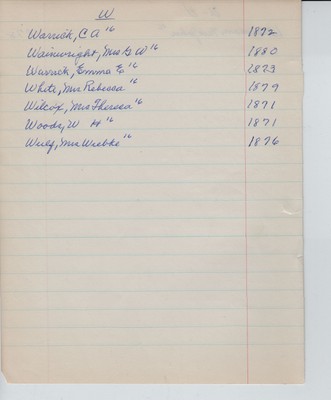 W
Warrick, C A "16 1872
Wainwright, Mrs G W "16 1880
Warrick, Emma E "16 1873
White, Mrs Rebecca "16 1879
Wilcox, Mrs Theresa "16 1871
Woods, W H "16 1871
Wulf, Mrs Wiebke "16 1876